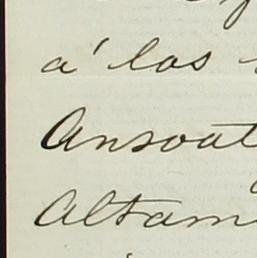 á los
Ansoat
Altam